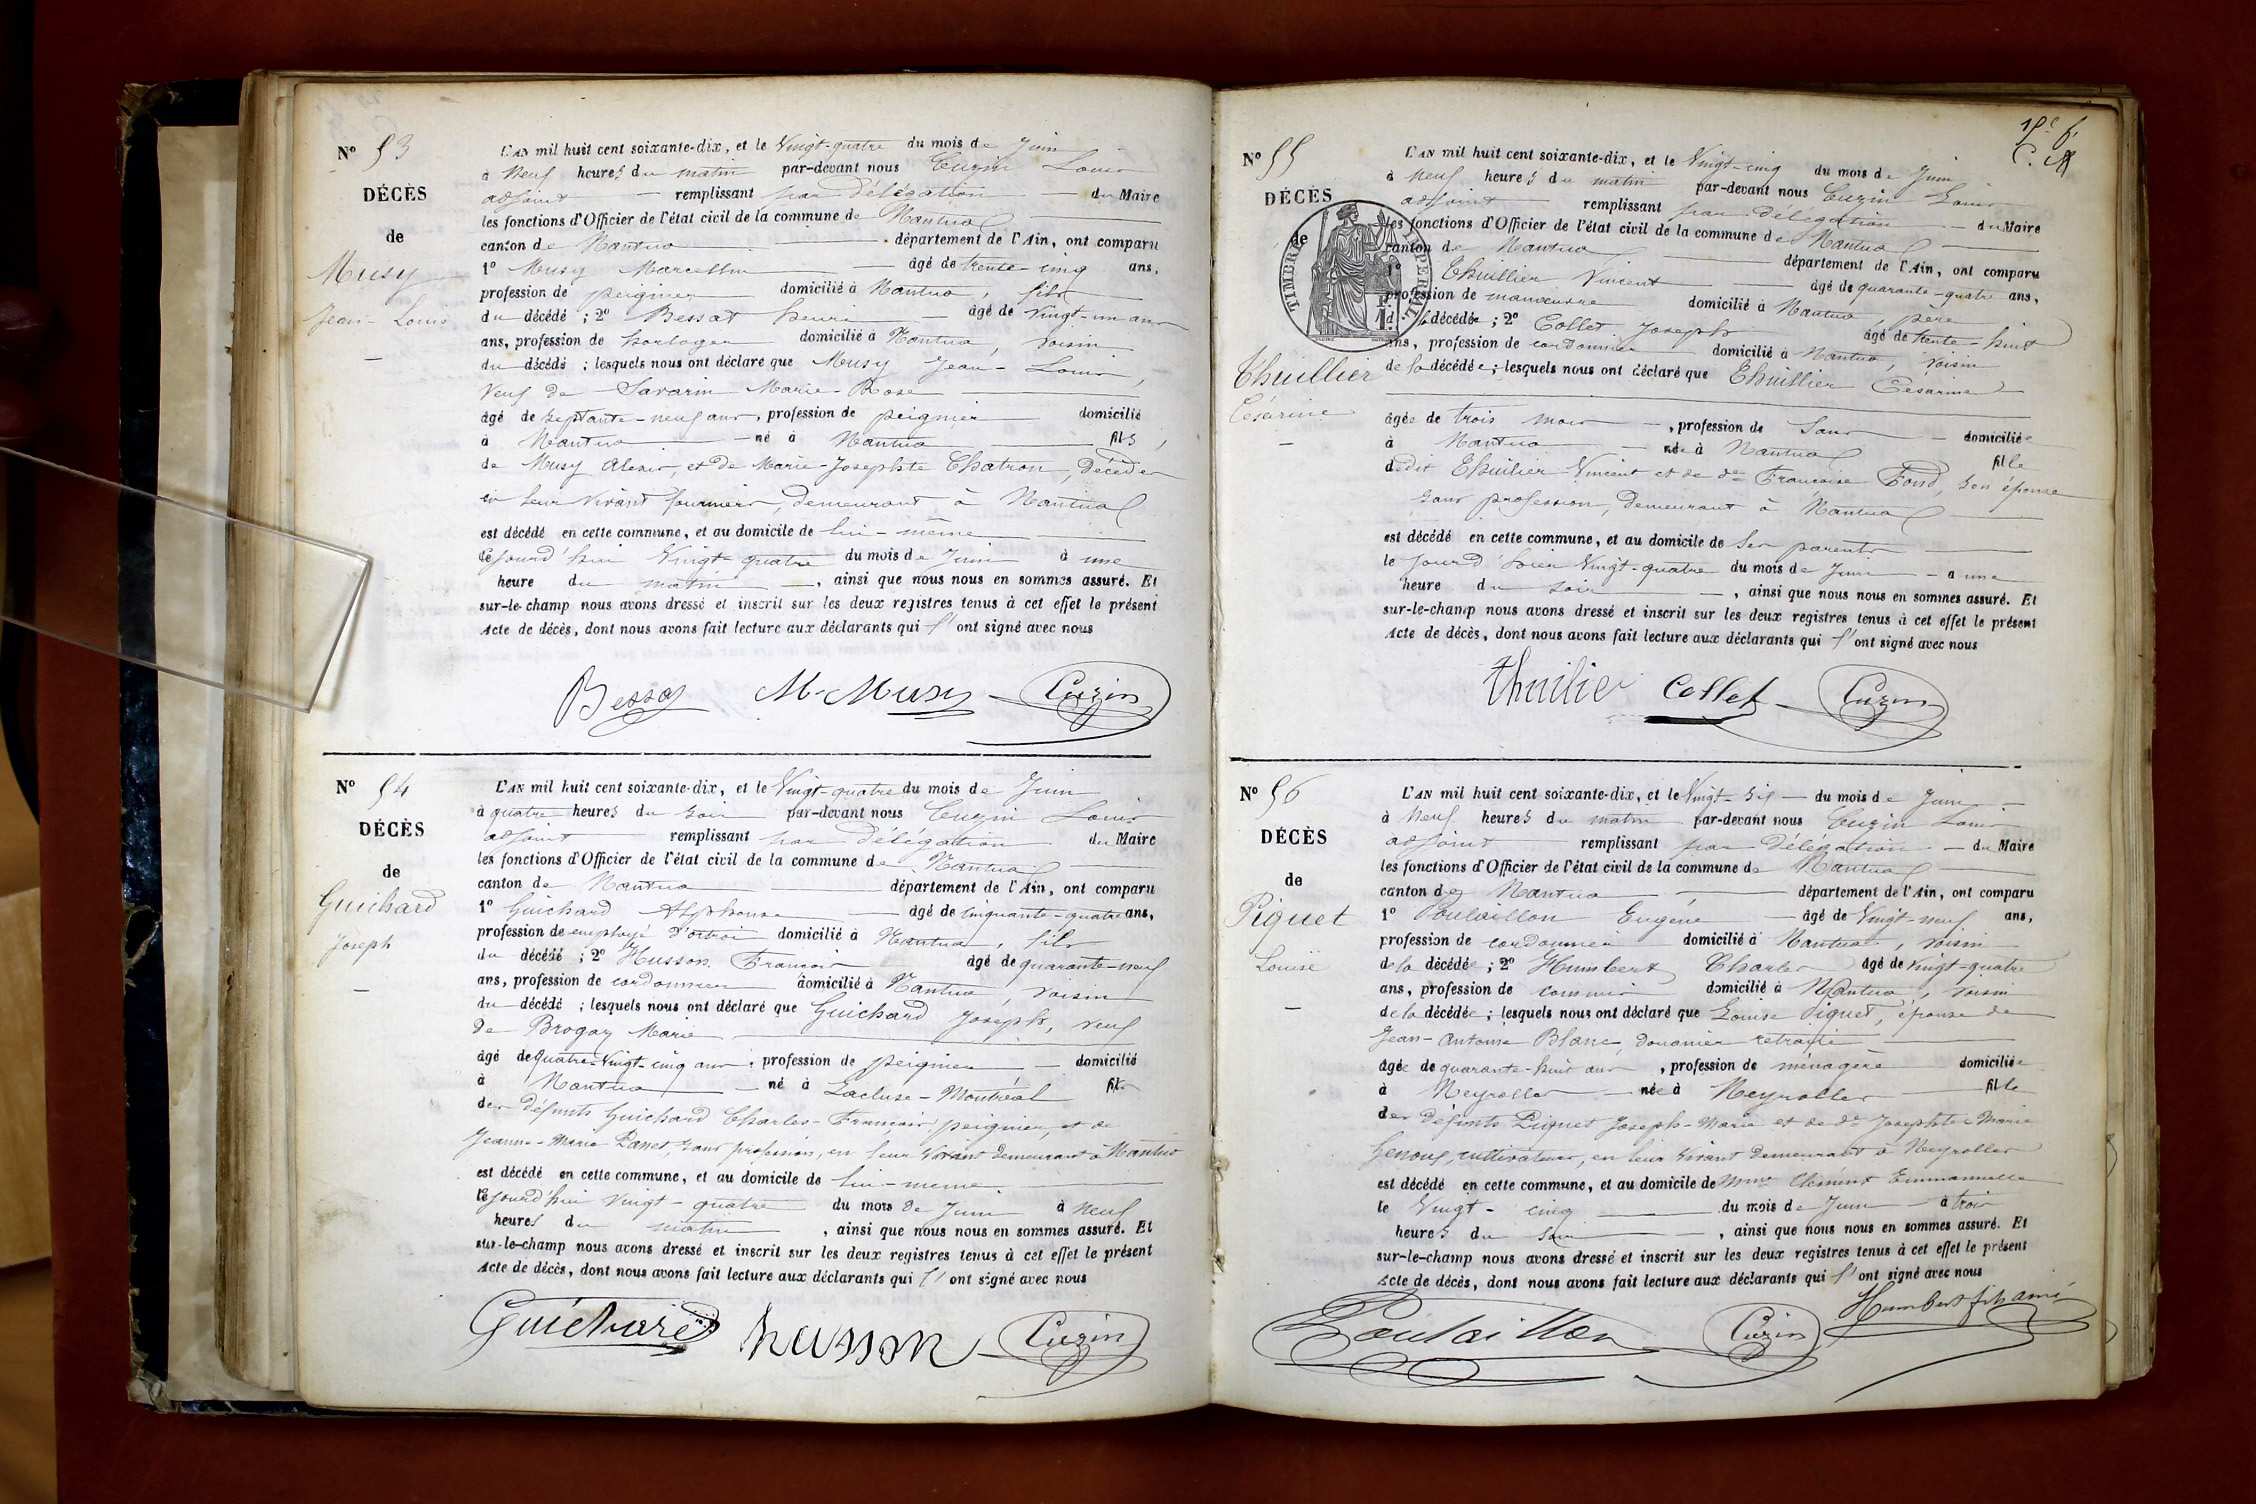 N° 53
DÉCÈS
de
Musy
Jean-Louis
L'AN mil huit cent soixante-dix, et le Vingt-quatre du mois de Juin
à Neuf heures du matin par-devant nous Cuzin Louis
adjoint remplissant par délégation du Maire
les fonctions d'Officier de l'état civil de la commune de Nantua
canton de Nantua département de l'Ain, ont comparu
1° Musy Marcellin âgé de trente-cinq ans,
profession de peignier domicilié à Nantua, fils
du décédé ; 2° Bessat âgé de vingt-un ans
ans, profession de horloger domicilié à Nantua, voisin
du décédé ; lesquels nous ont déclaré que Musy Jean-Louis,
Veuf de Savarin Marie-Rose
âgé de septante-neuf ans, profession de peignier domicilié
à Nantua né à Nantua fils,
de Musy Alexis, et de Marie-Josephte Chatron, décédés
en leur vivant fourniers, demeurant à Nantua
est décédé en cette commune, et au domicile de lui-même
cejourd'hui Vingt-quatre du mois de Juin à une
heure du matin, ainsi que nous nous en sommes assuré. Et
sur-le-champ nous avons dressé et inscrit sur les deux registres tenus à cet effet le présent
Acte de décès, dont nous avons fait lecture aux déclarants qui l' ont signé avec nous
Bessat M. Musy Cuzin
N° 54
DÉCÈS
de
Guichard
Joseph
L'AN mil huit cent soixante-dix, et le Vingt-quatre du mois de Juin
à quatre heures du soir par-devant nous Cuzin Louis
adjoint remplissant par délégation du Maire
les fonctions d'Officier de l'état civil de la commune de Nantua
canton de Nantua département de l'Ain, ont comparu
1° Guichard Alphonse âgé de cinquante-quatre ans,
profession de employé d'octroi domicilié à Nantua, fils
du décédé ; 2° Husson François âgé de quarante-neuf
ans, profession de cordonnier domicilié à Nantua, voisin
du décédé ; lesquels nous ont déclaré que Guichard Joseph, veuf
de Brogay Marie
âgé de quatre-Vingt-cinq ans, profession de peignier domicilié
à Nantua né à Lacluse-Montréal fils
des défunts Guichard Charles-François, peignier, et de
Jeanne-Marie Panet, sans profession, en leur vivant demeurant à Nantua
est décédé en cette commune, et au domicile de lui-même
cejourd'hui vingt-quatre du mois de Juin à neuf
heures du matin, ainsi que nous nous en sommes assuré. Et
sur-le-champ nous avons dressé et inscrit sur les deux registres tenus à cet effet le présent
Acte de décès, dont nous avons fait lecture aux déclarants qui l' ont signé avec nous
Guichard husson Cuzin
N° 55
DÉCÈS
de
TIMBRE IMPERIAL
Thuillier
Césarine
L'AN mil huit cent soixante-dix, et le Vingt-cinq du mois de Juin
à Neuf heures du matin par-devant nous Cuzin Louis
adjoint remplissant par délégation du Maire
les fonctions d'Officier de l'état civil de la commune de Nantua
canton de Nantua département de l'Ain, ont comparu
1° Thuillier Vincent âgé de quarante-quatre ans,
profession de manoeuvre domicilié à Nantua, père
d la décédée ; 2° Collet Joseph âgé de trente-huit
ans, profession de cordonnier domicilié à Nantua, voisin
de la décédée ; lesquels nous ont déclaré que Thuillier Césarine
âgée de trois mois, profession de Sans domiciliée
à Nantua née à Nantua fille
dudit Thuilier Vincent et de de Françoise Fond, son épouse
sans profession, demeurant à Nantua
est décédé en cette commune, et au domicile de ses parents
le jour d'hier Vingt-quatre du mois de Juin à une
heure du soir, ainsi que nous nous en sommes assuré. Et
sur-le-champ nous avons dressé et inscrit sur les deux registres tenus à cet effet le présent
Acte de décès, dont nous avons fait lecture aux déclarants qui l' ont signé avec nous
thuilier Collet Cuzin
N° 56
DÉCÈS
de
Piquet
Louise
L'AN mil huit cent soixante-dix, et le Vingt-six du mois de Juin
à Neuf heures du matin par-devant nous Cuzin Louis
adjoint remplissant par délégation du Maire
les fonctions d'Officier de l'état civil de la commune de Nantua
canton de Nantua département de l'Ain, ont comparu
1° Poulaillon Eugène âgé de Vingt-neuf ans,
profession de cordonnier domicilié à Nantua, voisin
de la décédée ; 2° Humbert Charles âgé de vingt-quatre
ans, profession de commis domicilié à Nantua, voisin
de la décédée ; lesquels nous ont déclaré que Louise Piquet, épouse de
Jean-Antoine Blanc, douanier retraité
âgée de quarante-huit ans, profession de ménagère domiciliée
à Neyrolles née à Neyrolles fille
des défunts Piquet Joseph-Marie et de de Josephte-Marie
Genouf, cultivateurs, en leur vivant demeurant à Neyrolles
est décédé en cette commune, et au domicile de Mme Clément Emmanuelle
le Vingt-cinq du mois de Juin à trois
heures du soir, ainsi que nous nous en sommes assuré. Et
sur-le-champ nous avons dressé et inscrit sur les deux registres tenus à cet effet le présent
Acte de décès, dont nous avons fait lecture aux déclarants qui l' ont signé avec nous
Poulaillon Cuzin Humbert fils aîné